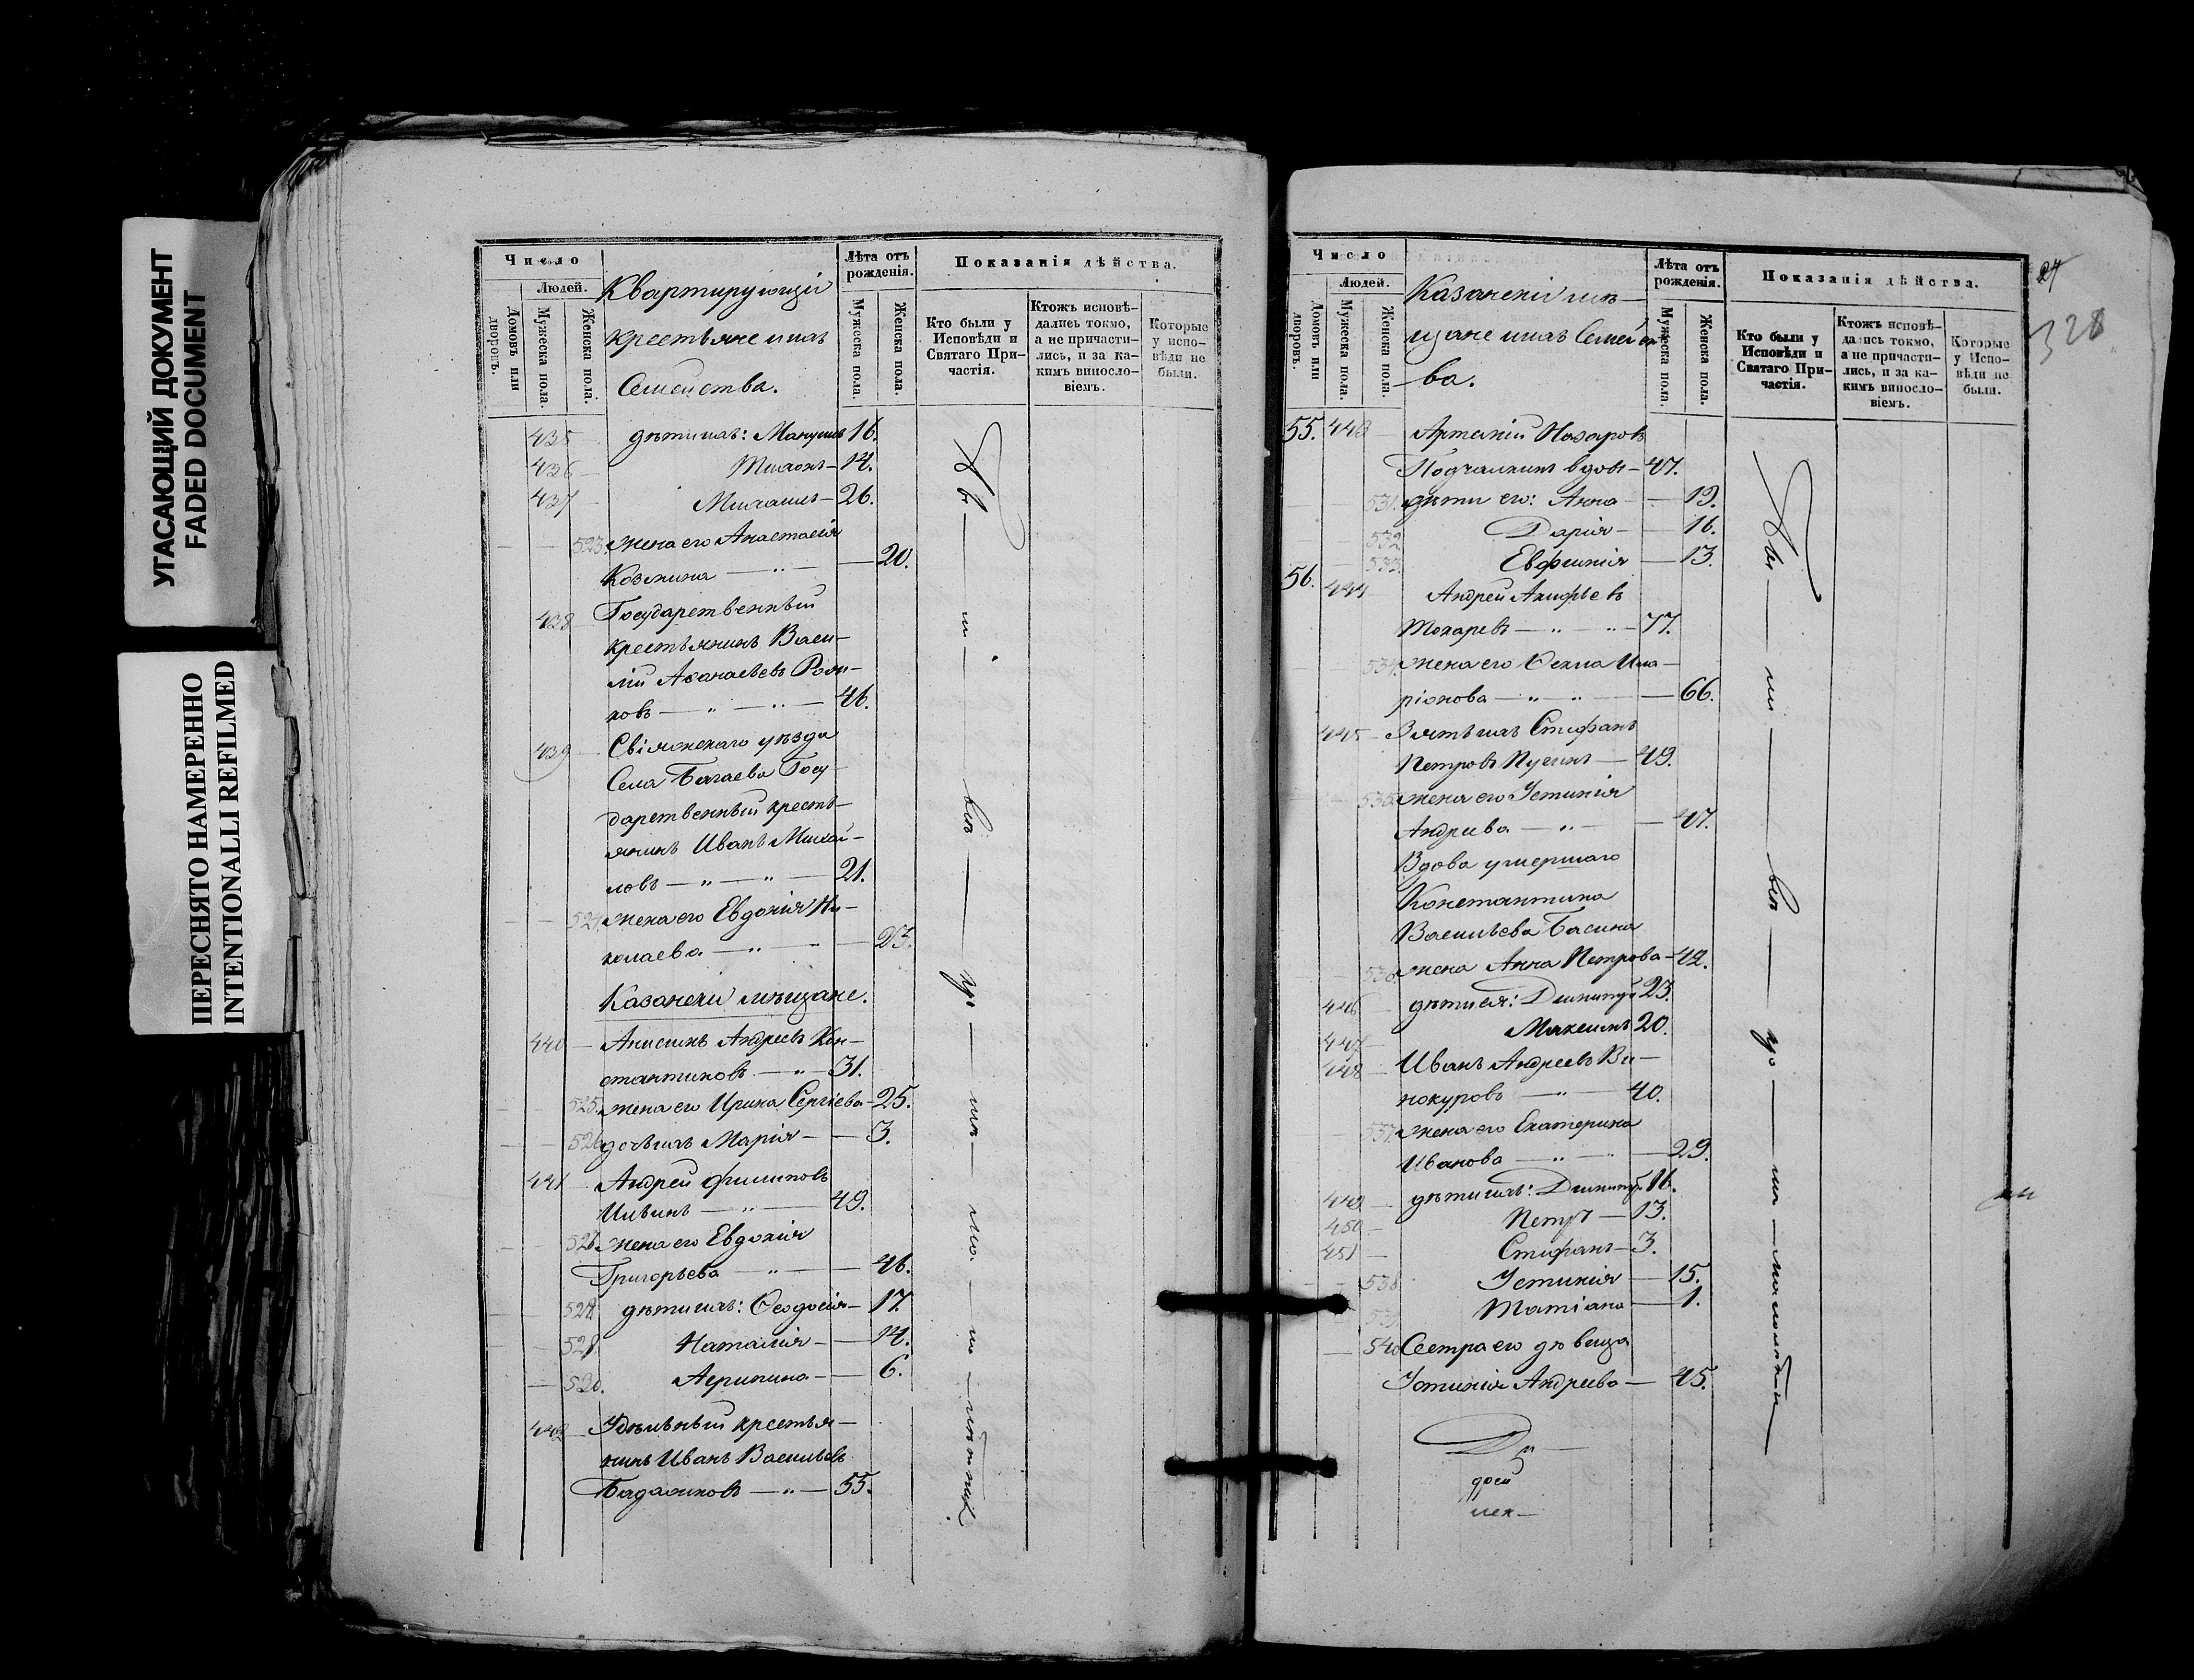 УГАСАЮЩИЙ ДОКУМЕНТ
FADED DOCUMENT
ПЕРЕСНЯТО НАМЕРЕННО
INTENTIONALLI REFILMED
Число
Людей.
Домовъ или дворовъ.
Мужеска пола.
Женска пола.
Квартирующіи
крестьяне ихъ
Семейства.
Лѣта отъ рожденія.
Мужеска пола.
Женска пола.
Показанія дѣйства.
Кто были у Исповѣди и Святаго Причастія.
Ктожъ исповѣдались токмо, а не причастились, и за какимъ винословіемъ.
Которые у исповѣди не были.
435 дѣти ихъ: 16.
436 14.
437 Михаилъ 26.
523. жена его Анастасія
Козмина 20.
438 Государственный
крестьянинъ Васи-
лій
ковъ 46.
439 Свіяжскаго уѣзда
Села Багаева Госу-
дарственный кресть-
янинъ Иванъ Михай-
ловъ 21.
524. жена его Евдокія Ни-
колаева 23.
Казанскіи мѣщане.
440 Анисимъ Андреевъ Кон-
стантиновъ 31.
525. жена его Ирина Сергіева 25.
526 дочь ихъ Марія 3.
441 Андрей Филиповъ
Ильинъ 49.
526. жена его Евдокія
Григорьева 46.
527. дѣти ихъ: Ѳеодосія 17.
528 Наталія 14.
530. Агрипина 6.
442 Удѣльный крестья-
нинъ Иванъ Васильевъ
55.
Число
Людей.
Домовъ или дворовъ.
Мужеска пола.
Женска пола.
Казанскіи мѣ-
щане ихъ Семейст
ва.
Лѣта отъ рожденія.
Мужеска пола.
Женска пола.
Показанія дѣйства.
Кто были у Исповѣди и Святаго Причастія.
Ктожъ исповѣдались токмо, а не причастились, и за какимъ винословіемъ.
Которые у Исповѣди не были.
328
55. 443 Артемій Назаровъ
вдовъ 47.
531. дѣти его: Анна 19.
532 Дарія 16.
533. Евфимія 13.
56. 444 Андрей Акифьевъ
Токаревъ 77.
534. жена его Ила-
ріонова 66.
445 Зять ихъ Стефанъ
Петровъ 49.
535. жена его Устинія
Андреева 47.
Вдова умершаго
Константина
Васильева Басина
536. жена Анна Петрова 42.
446 дѣти ея: Димитрій 23.
447 Максимъ 20.
448 Иванъ Андреевъ Ви-
нокуровъ 40.
537. жена его Екатерина
Иванова 29.
449 дѣти ихъ: Димитрій 16.
450 Петръ 13.
451 Стефанъ 3.
538 Устинія 15.
539. Татіана 1.
540 Сестра его дѣвица
Устинія Андреева 45.